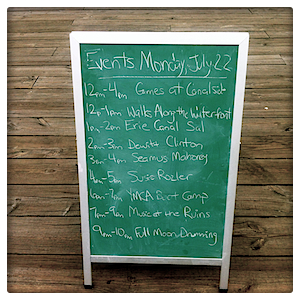 Events Monday July 22
12pm-4pm Games at Canalside
12pm-1pm Walks Along the Waterfront
1pm-2pm Erie Canal Sal
2pm-3pm Dewitt Clinton
3pm-4pm Seamus Mahoney
4pm-5pm Susie Rozler
6pm-7pm YMCA Boot Camp
7pm-9pm Music at the Ruins
9pm-10pm Full Moon Drumming